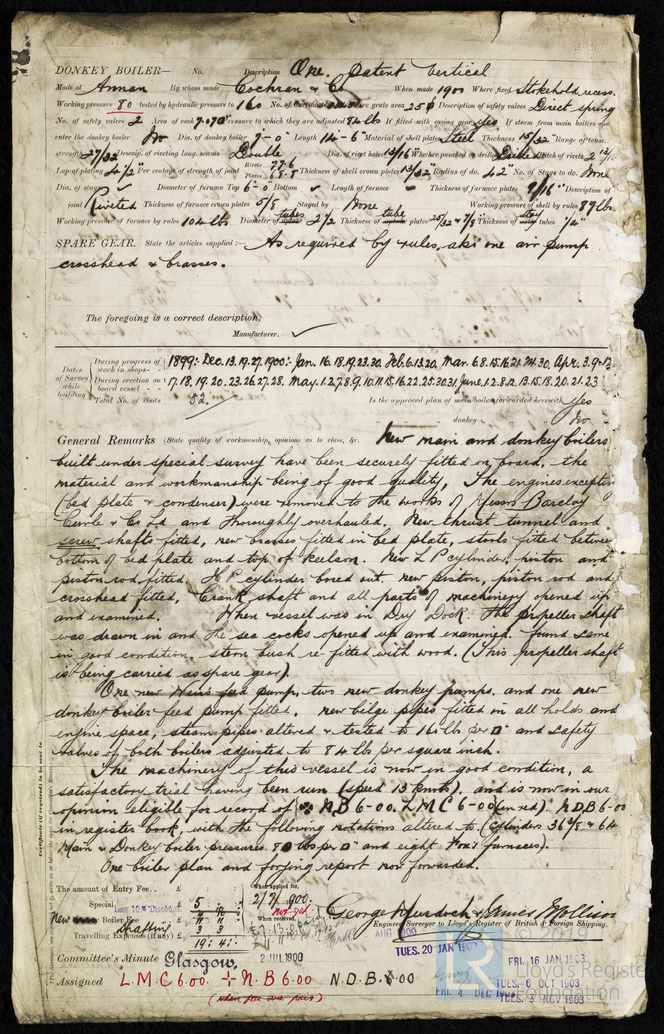 DONKEY BOILER— No. Description One. Patent Vertical
Made at Annan By whom made Cochran & Co When made 1900 Where fixed Stokehold recess.
Working pressure 80 tested by hydraulic pressure to 160 No. of Certificate grate area 25 Description of safety valves Direct spring
No. of safety valves 2 Area of each 7.07 pressure to which they are adjusted 84 lbs If fitted with easing gear yes If steam from main boilers can
enter the donkey boiler No Dia. of donkey boiler 7-0" Length 14-6" Material of shell plates Steel Thickness 15/32" Range of tensile
strength 27/32 Descrip. of riveting long. seams Double Dia. of rivet holes 13/16 Whether punched or drilled Pitch of rivets 2
Lap of plating 4 1/2" Per centage of strength of joint Rivets 77.6 Plates 68.8 Thickness of shell crown plates 15/32 Radius of do. 42" No. of Stays to do. None
Dia. of stays ✓ Diameter of furnace Top 6-0 Bottom ✓ Length of furnace Thickness of furnace plates 9/16" Description of
joint Riveted Thickness of furnace crown plates 5/8 Stayed by None Working pressure of shell by rules 89 lbs
Working pressure of furnace by rules 104 lb Diameter of tubes 2 1/2 Thickness of tube plates 25/32 & 7/8" Thickness of stay tubes 1/4"
SPARE GEAR. State the articles supplied:— As required by rules, also one air pump
crosshead & brasses.
The foregoing is a correct description,
Manufacturer. ✓
Dates of Survey while building
During progress of work in shops— 1899:- Dec. 13. 19. 27. 1900:- Jan. 16. 18. 19. 23. 30. Feb. 6. 13. 20. Mar. 6. 8. 15. 16. 21. 24. 30. Apr. 3. 9. 12
During erection on board vessel— 17. 18. 19. 20. 23. 26. 27. 28. May. 1. 2. 7. 8. 9. 10. 11. 15. 16. 22. 25. 30. 31. June. 1. 2. 8. 12. 13. 15. 18. 20. 21. 23
Total No. of visits 52. Is the approved plan of main boiler forwarded herewith Yes
" " donkey " " No
General Remarks (State quality of workmanship, opinions as to class, &c. New main and donkey boilers
built under special survey have been securely fitted on board, the
material and workmanship being of good quality. The engines excepting
(bed plate & condenser) were removed to the works of Messrs Barclay
Curle & Co Ld and thoroughly overhauled, New thrust tunnel and
screw shafts fitted, new brasses fitted in bed plate, stools fitted between
bottom of bed plate and top of keelson. New L P cylinder, piston and
piston rod fitted. H P cylinder bored out new piston, piston rod and
crosshead fitted, Crank shaft and all parts of machinery opened up
and examined. When vessel was in Dry Dock. the propeller shaft
was drawn in and the sea cocks opened up and examined. found same
in good condition. stern bush re-fitted with wood. (This propeller shaft
is being carried as spare gear).
One new Weirs feed pump, two new donkey pumps, and one new
donkey boiler feed pump fitted. new bilge pipes fitted in all holds and
engine space, steam pipes altered & tested to 160 lbs per □" and safety
valves of both boilers adjusted to 84 lb per square inch.
The machinery of this vessel is now in good condition, a
satisfactory trial having been run (speed 13 knots). and is now in our
opinion eligible for record of ✠ N.B 6-00. L.M.C 6-00 (in red). N.D.B 6-00
in register book, with the following notations altered to (cylinders 36 & 64
Main & Donkey boiler pressures 80 lbs per □" and eight Fox's furnaces).
One boiler plan and forging report now forwarded.
The amount of Entry Fee.. £ : : When applied for,
Special Less 10% Discount. £ 5
New Boiler Fee
Shafting 3 3
Travelling Expenses (if any) £
19: 4: When received,
George Murdoch & James Mollison
Engineer Surveyor to Lloyd's Register of British & Foreign Shipping.
Committee's Minute Glasgow, 2 JUL 1900
Assigned L.M.C 6.00. ✠ N.B 6.00 N.D.B. 6.00
(when fee are paid)
AUG 1900
TUES. 20 JAN 1903
FRI. 16 JAN 1903
TUES. 6 OCT 1903
FRI. 4 DEC 1903
TUES. 3 NOV 1903
© 2019
Lloyd's Register
Foundation